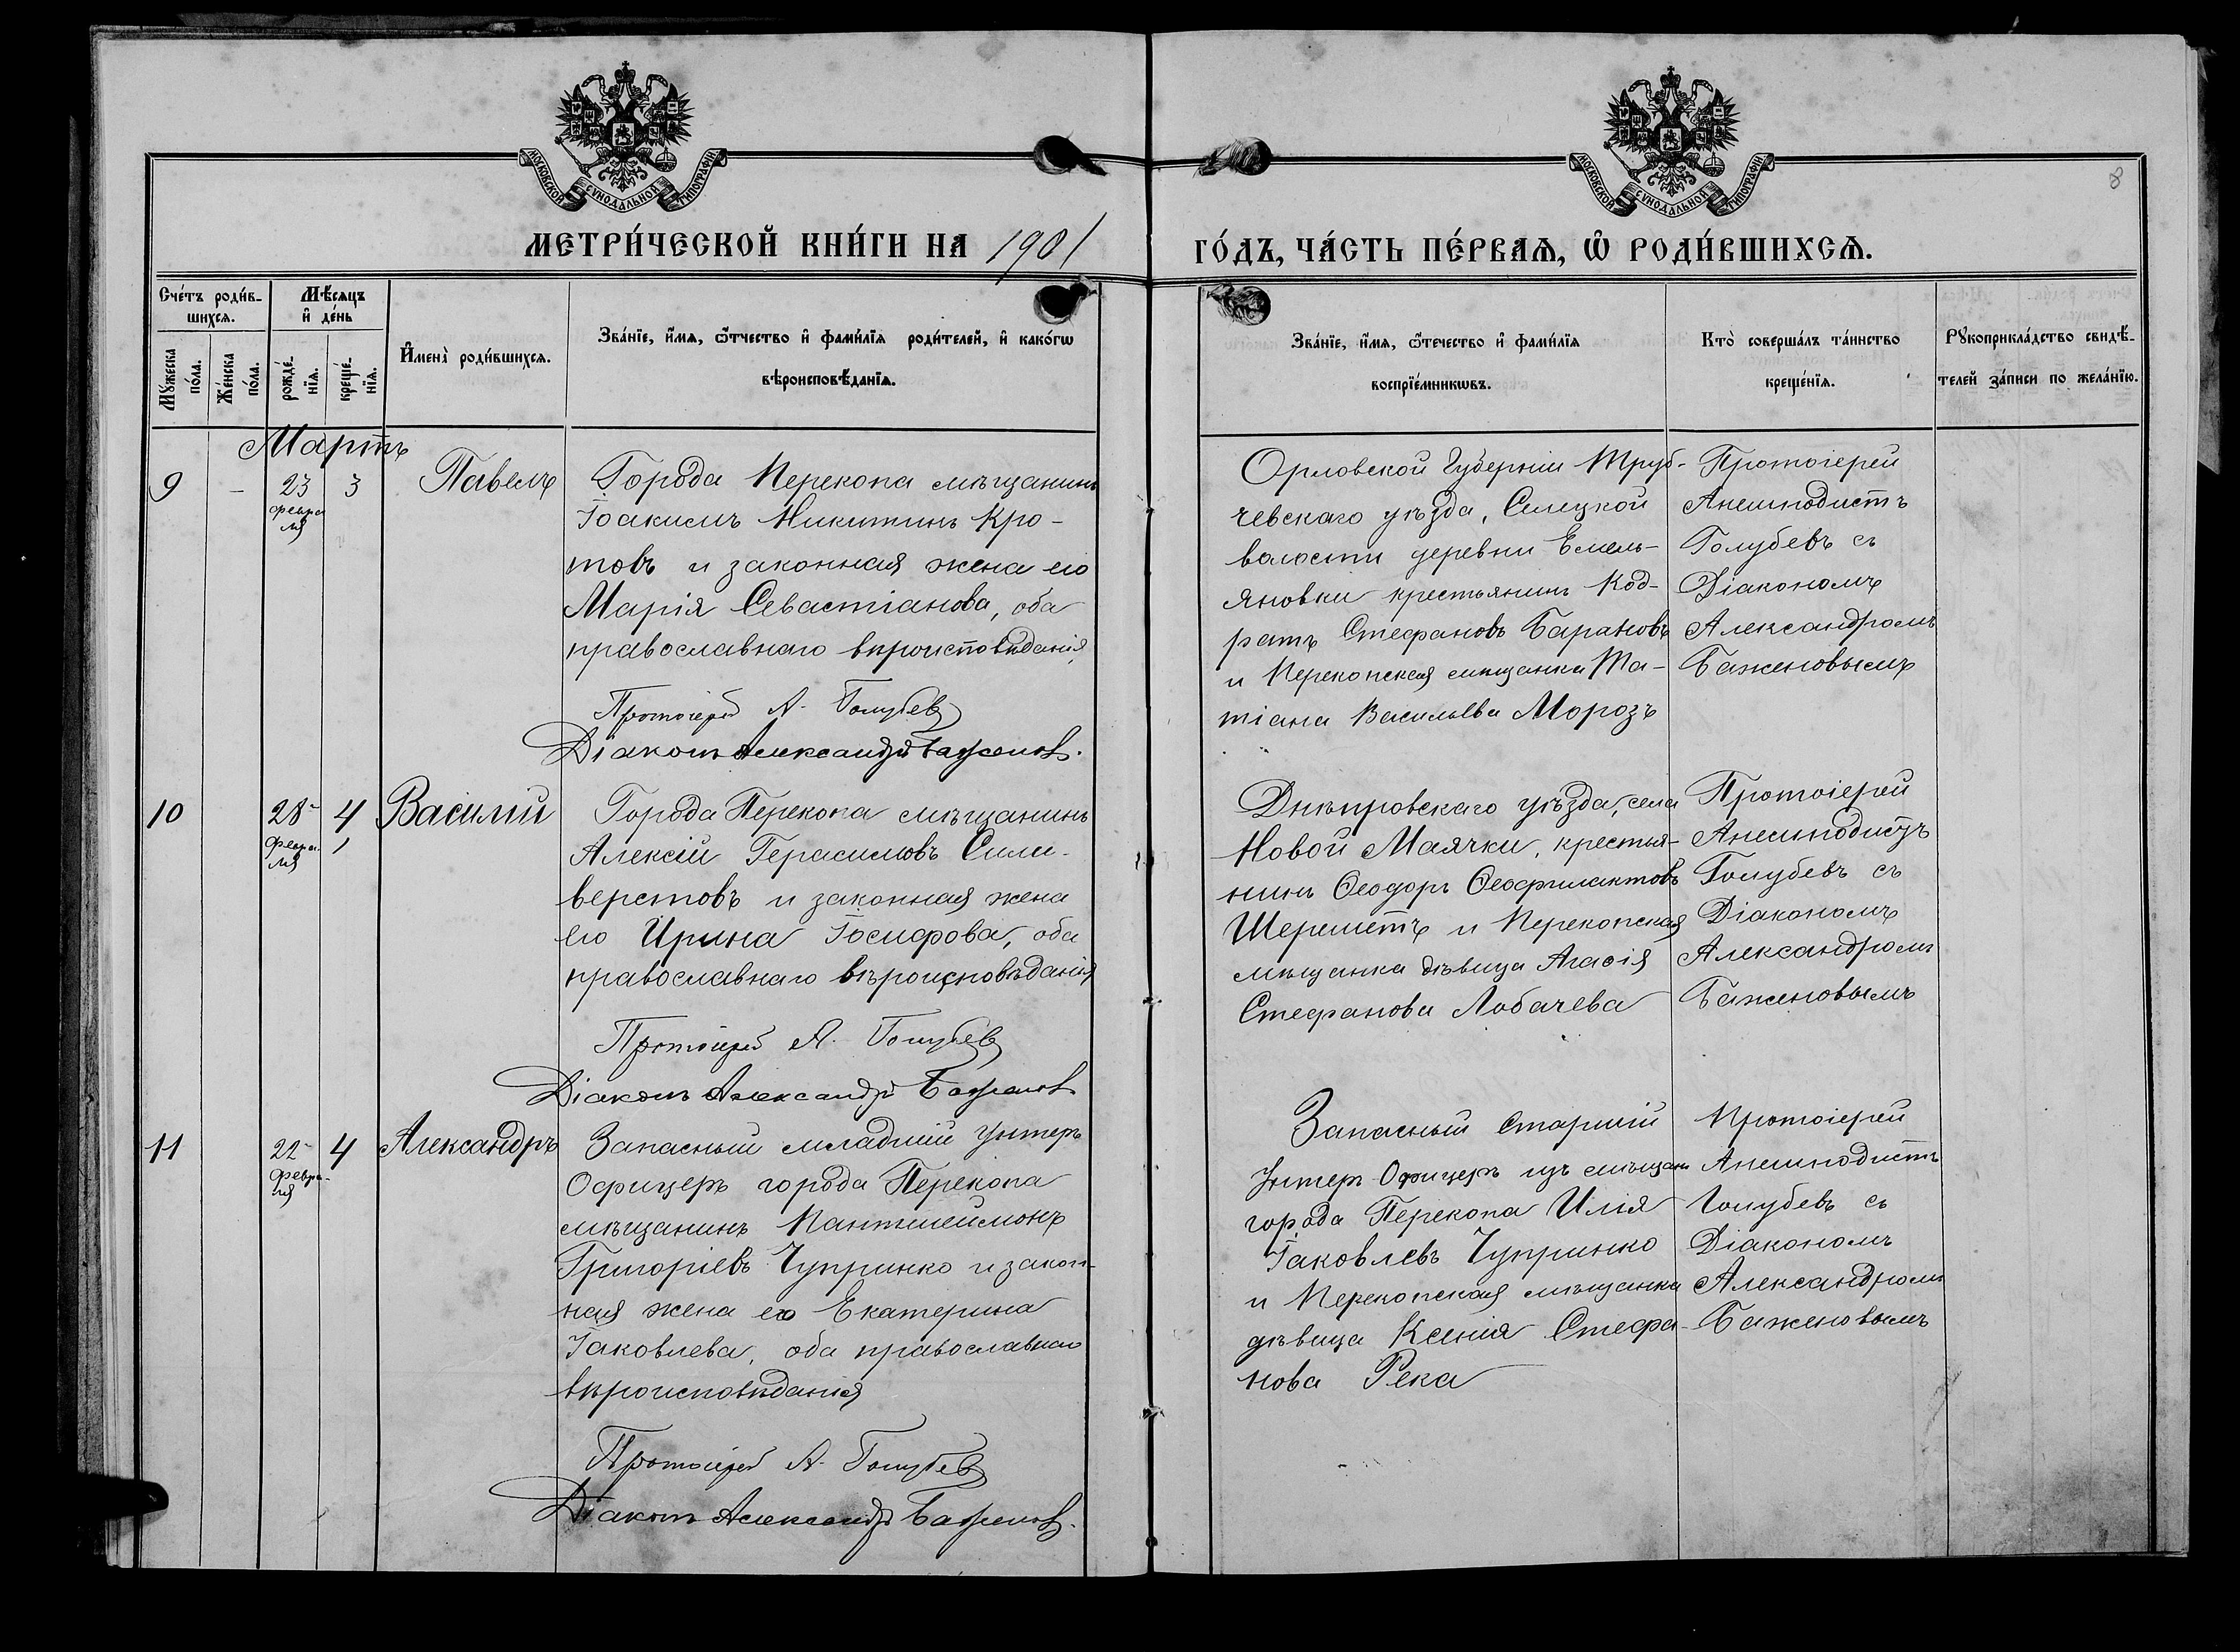 МОСКОВСКОЙ СѴНОДАЛЬНОЙ ТИПОГРАФІИ.
МОСКОВСКОЙ СѴНОДАЛЬНОЙ ТИПОГРАФІИ.
8
МЕТРИ́ЧЕСКОЙ КНИ́ГИ НА 1901 ГО́ДЪ, ЧА́СТЬ ПЕ́РВАѦ, Ѡ РОДИ́ВШИХСѦ.
Сче́тъ роди́в-
шихсѧ.
Мѣ́сѧцъ
и де́нь
Мꙋ́жеска
по́ла.
Же́нска
по́ла.
рожде́-
нїѧ.
креще́-
нїѧ.
Имена̀ роди́вшихсѧ.
Зва́нїе, и́мѧ, ѻ҆́тчество и фами́лїѧ роди́телей, и како́гѡ
вѣроисповѣ́данїѧ.
Зва́нїе, и́мѧ, ѻ҆те́чество и фами́лїѧ
воспрїе́мникѡвъ.
Кто̀ соверша́лъ та́инство
креще́нїѧ.
Рꙋкоприкла́дство свидѣ́-
телей за́писи по жела́нїю.
Мартъ
9 - 23 3 Павелъ
Февра
ля
Города Перекопа мѣщанинъ
Іоакимъ Никитинъ Кро-
товъ и законная жена его
Марія Севастіанова, оба
православнаго вѣроисповѣданія
Протоіерей А. Голубевъ
Діаконъ Александръ Баженовъ.
Орловской Губерніи Труб-
чевскаго уѣзда, Селецкой
волости деревни Емель-
яновки крестьянинъ Код-
ратъ Стефановъ Барановъ
и Перекопская мѣщанка Та-
тіана Васильева Морозъ
Протоіерей
Анемподистъ
Голубевъ съ
Діакономъ
Александромъ
Баженовымъ
10 28 4 Василій
Февра-
ля
Города Перекопа мѣщанинъ
Алексій Герасимовъ Сили-
верстовъ и законная жена
его Ирина Іосифова, оба
православнаго вѣроисповѣданія
Протоіерей А. Голубевъ
Діаконъ Александръ Баженовъ
Днѣпровскаго уѣзда, села
Новой Маячки, крестья-
нинъ Ѳеодоръ Ѳеофилактовъ
Шереметъ и Перекопская
мѣщанка дѣвица Агаѳія
Стефанова Лобачева
Протоіерей
Анемподистъ
Голубевъ съ
Діакономъ
Александромъ
Баженовымъ
11 22 4 Александръ
Февра-
ля
Запасный младшій Унтеръ
Офицеръ города Перекопа
мѣщанинъ Пантелеимонъ
Григоріевъ Чупринко и закон-
ная жена его Екатерина
Іаковлева, оба православнаго
вѣроисповѣданія
Протоіерей А. Голубевъ
Діаконъ Александръ Баженовъ.
Запасный Старшій
Унтеръ-Офицеръ изъ мѣщанъ
города Перекопа Илія
Іаковлевъ Чупринко
и Перекопская мѣщанка
дѣвица Ксенія Стефа-
нова Река
Протоіерей
Анемподистъ
Голубевъ съ
Діакономъ
Александромъ
Баженовымъ